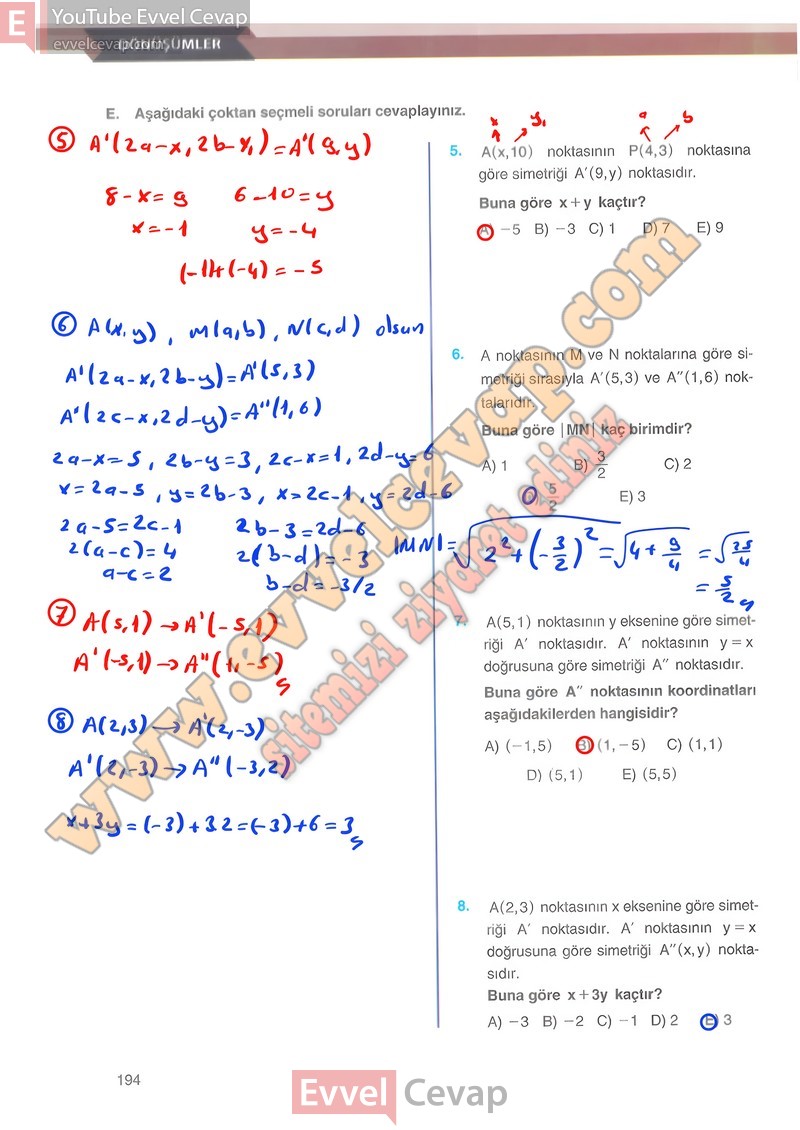 E
YouTube Evvel Cevap
evvelcevap.com
DÖNÜŞÜMLER
E. Aşağıdaki çoktan seçmeli soruları cevaplayınız.
⑤ A'(2a-x, 2b-y₁) = A'(9,y)
8-x=9 6-10=y
x=-1 y=-4
(-1)+(-4) = -5
⑥ A(x,y), M(a,b), N(c,d) olsun
A'(2a-x, 2b-y) = A'(5,3)
A'(2c-x, 2d-y) = A''(1,6)
2a-x=5, 2b-y=3, 2c-x=1, 2d-y=6
x=2a-5, y=2b-3, x=2c-1, y=2d-6
2a-5=2c-1 2b-3=2d-6
2(a-c)=4 2(b-d)=-3
a-c=2 b-d=-3/2
|MN| = √(2²+(-3/2)²) = √(4+9/4) = √(25/4)
= 5/2
⑦ A(5,1) → A'(-5,1)
A'(-5,1) → A''(1,-5)
⑧ A(2,3) → A'(2,-3)
A'(2,-3) → A''(-3,2)
x+3y = (-3)+3.2 = (-3)+6 = 3
x y₁ a b
5. A(x,10) noktasının P(4,3) noktasına
göre simetriği A′(9,y) noktasıdır.
Buna göre x+y kaçtır?
A) −5 B) −3 C) 1 D) 7 E) 9
6. A noktasının M ve N noktalarına göre si-
metriği sırasıyla A′(5,3) ve A″(1,6) nok-
talarıdır.
Buna göre |MN| kaç birimdir?
A) 1 B) 3/2 C) 2
D) 5/2 E) 3
7. A(5,1) noktasının y eksenine göre simet-
riği A′ noktasıdır. A′ noktasının y=x
doğrusuna göre simetriği A″ noktasıdır.
Buna göre A″ noktasının koordinatları
aşağıdakilerden hangisidir?
A) (−1,5) B) (1,−5) C) (1,1)
D) (5,1) E) (5,5)
8. A(2,3) noktasının x eksenine göre simet-
riği A′ noktasıdır. A′ noktasının y=x
doğrusuna göre simetriği A″(x,y) nokta-
sıdır.
Buna göre x+3y kaçtır?
A) −3 B) −2 C) −1 D) 2 E) 3
www.evvelcevap.com
sitemizi ziyaret ediniz
194
Evvel Cevap